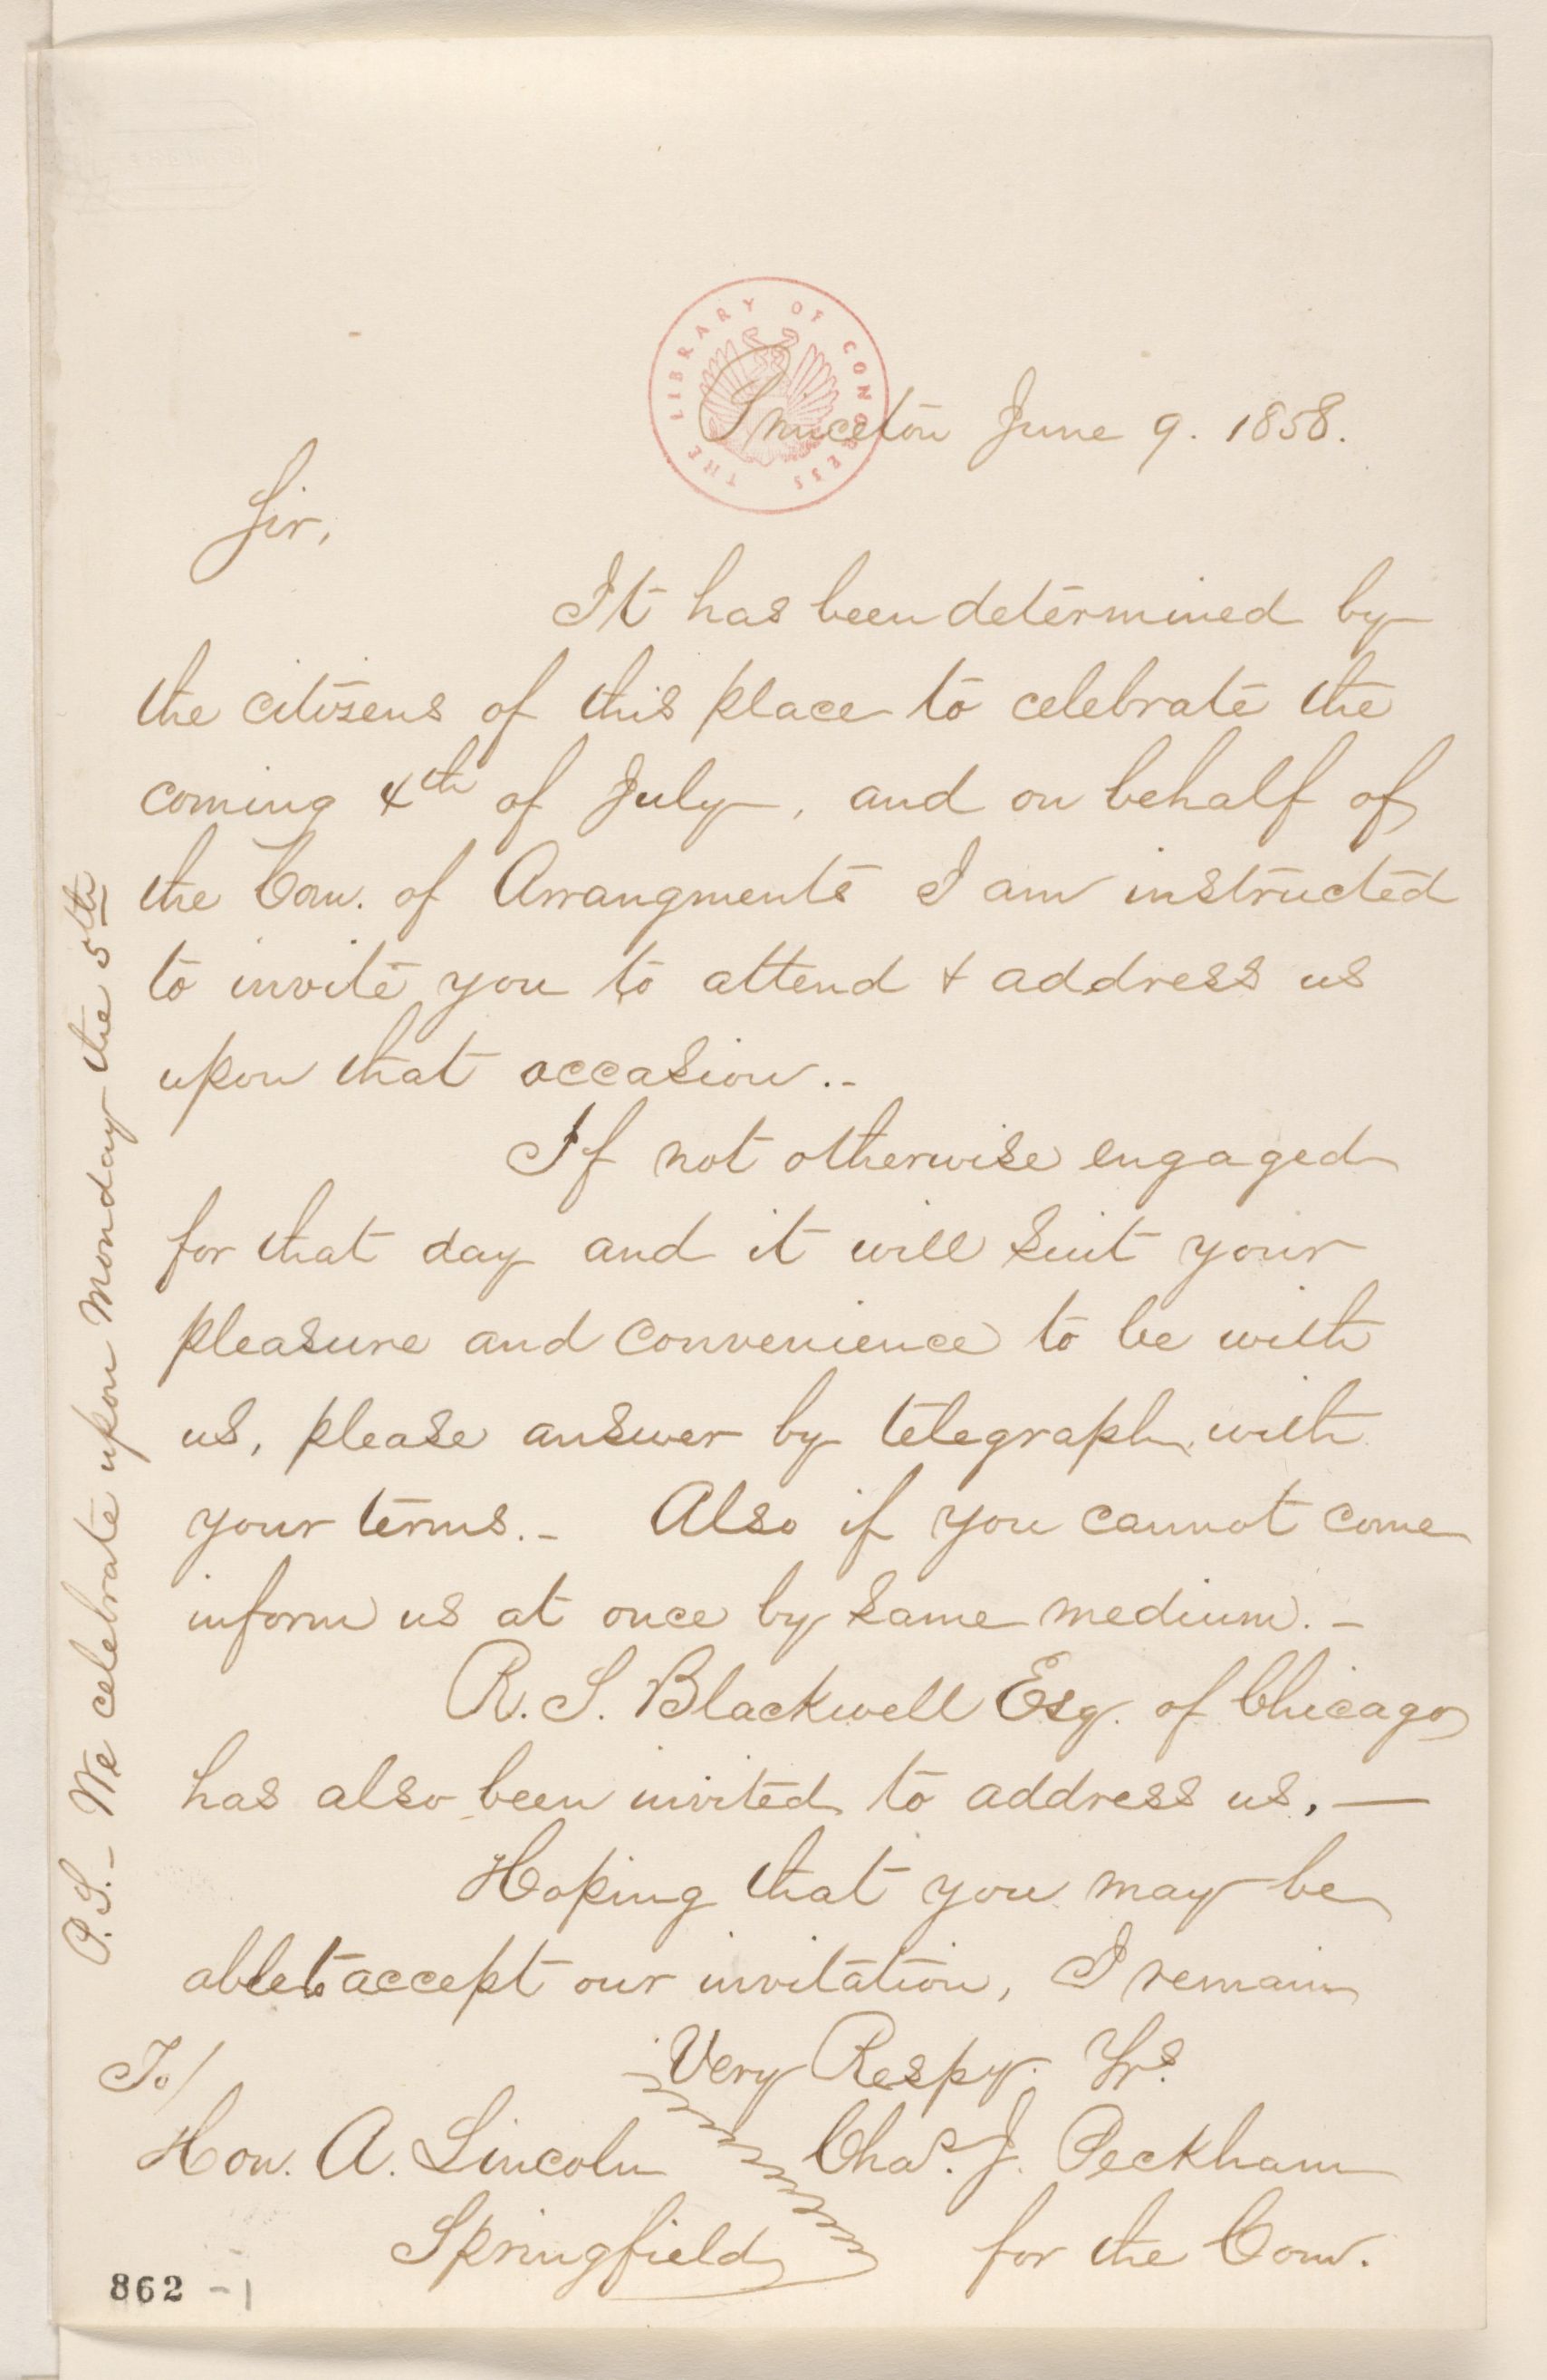 THE LIBRARY OF CONGRESS
Princeton June 9. 1858.
Sir,
It has been determined by
the citizens of this place to celebrate the
coming 4th of July, and on behalf of
the Com. of Arrangments I am instructed
to invite you to attend + address us
upon that occasion.-
If not otherwise engaged
for that day and it will suit your
pleasure and convenience to be with
us, please answer by telegraph, with
your terms.- Also if you cannot come
inform us at once by same medium.-
R. S. Blackwell Esq. of Chicago
has also been invited to address us.—
Hoping that you may be
able to accept our invitation, I remain
Very Respy. Yrs.
To/
Hon. A. Lincoln
Springfield
Chas. J. Peckham
for the Com.
P.S.- We celebrate upon Monday the 5th
862-1